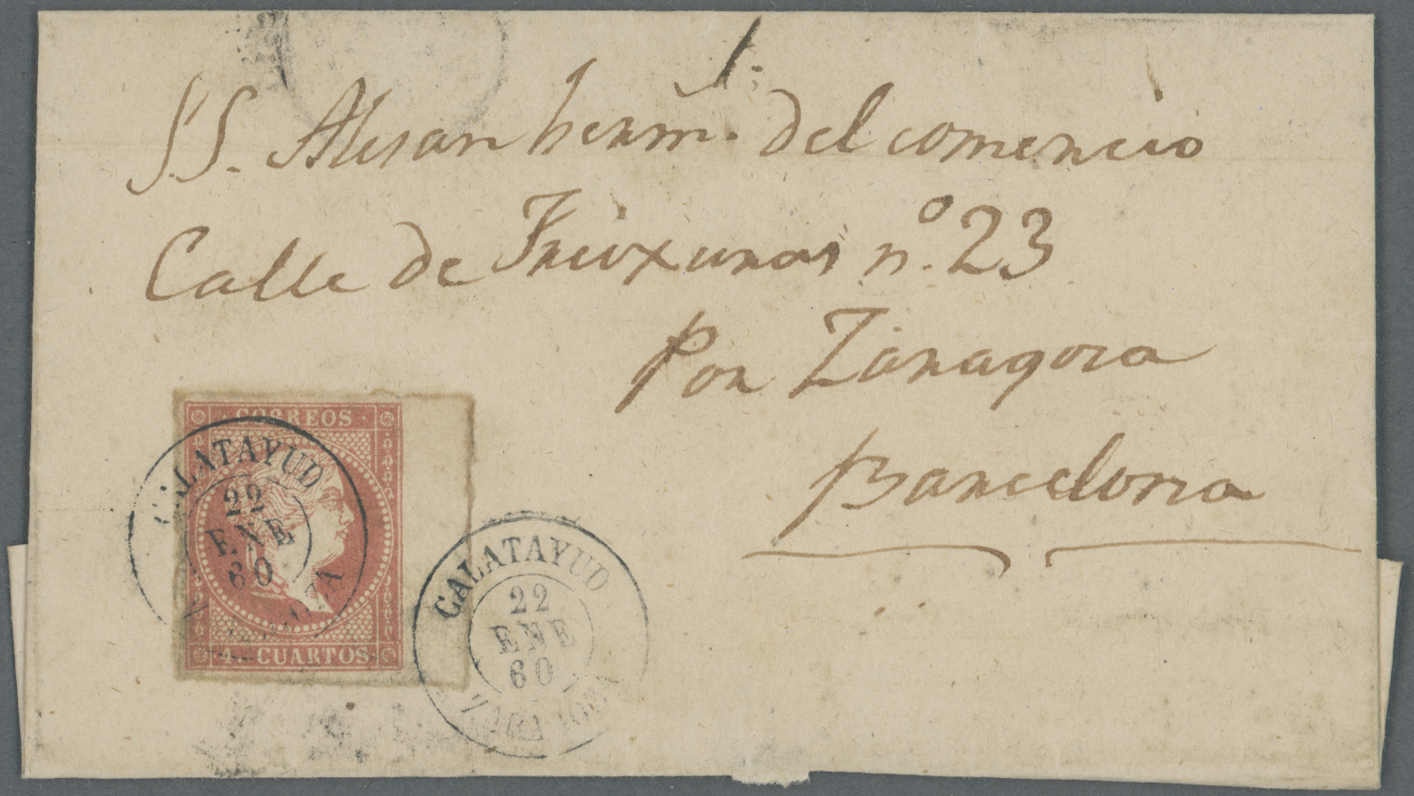 SS. Alesan herm.s del comercio
Calle de Freixuras nº. 23
Por Zaragoza
Barcelona
CORREOS
CALATAYUD
22
ENE
60
4 CUARTOS
CALATAYUD
22
ENE
60
ZARAGOZA